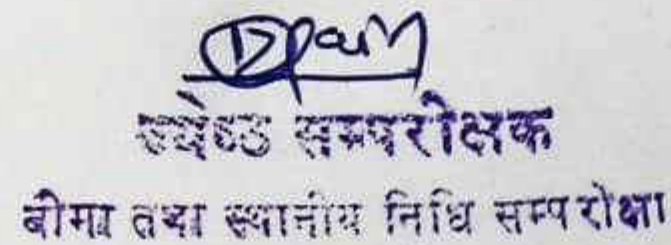 ज्येष्ठ सम्परीक्षक
बीमा तथा स्थानीय निधि सम्परीक्षा